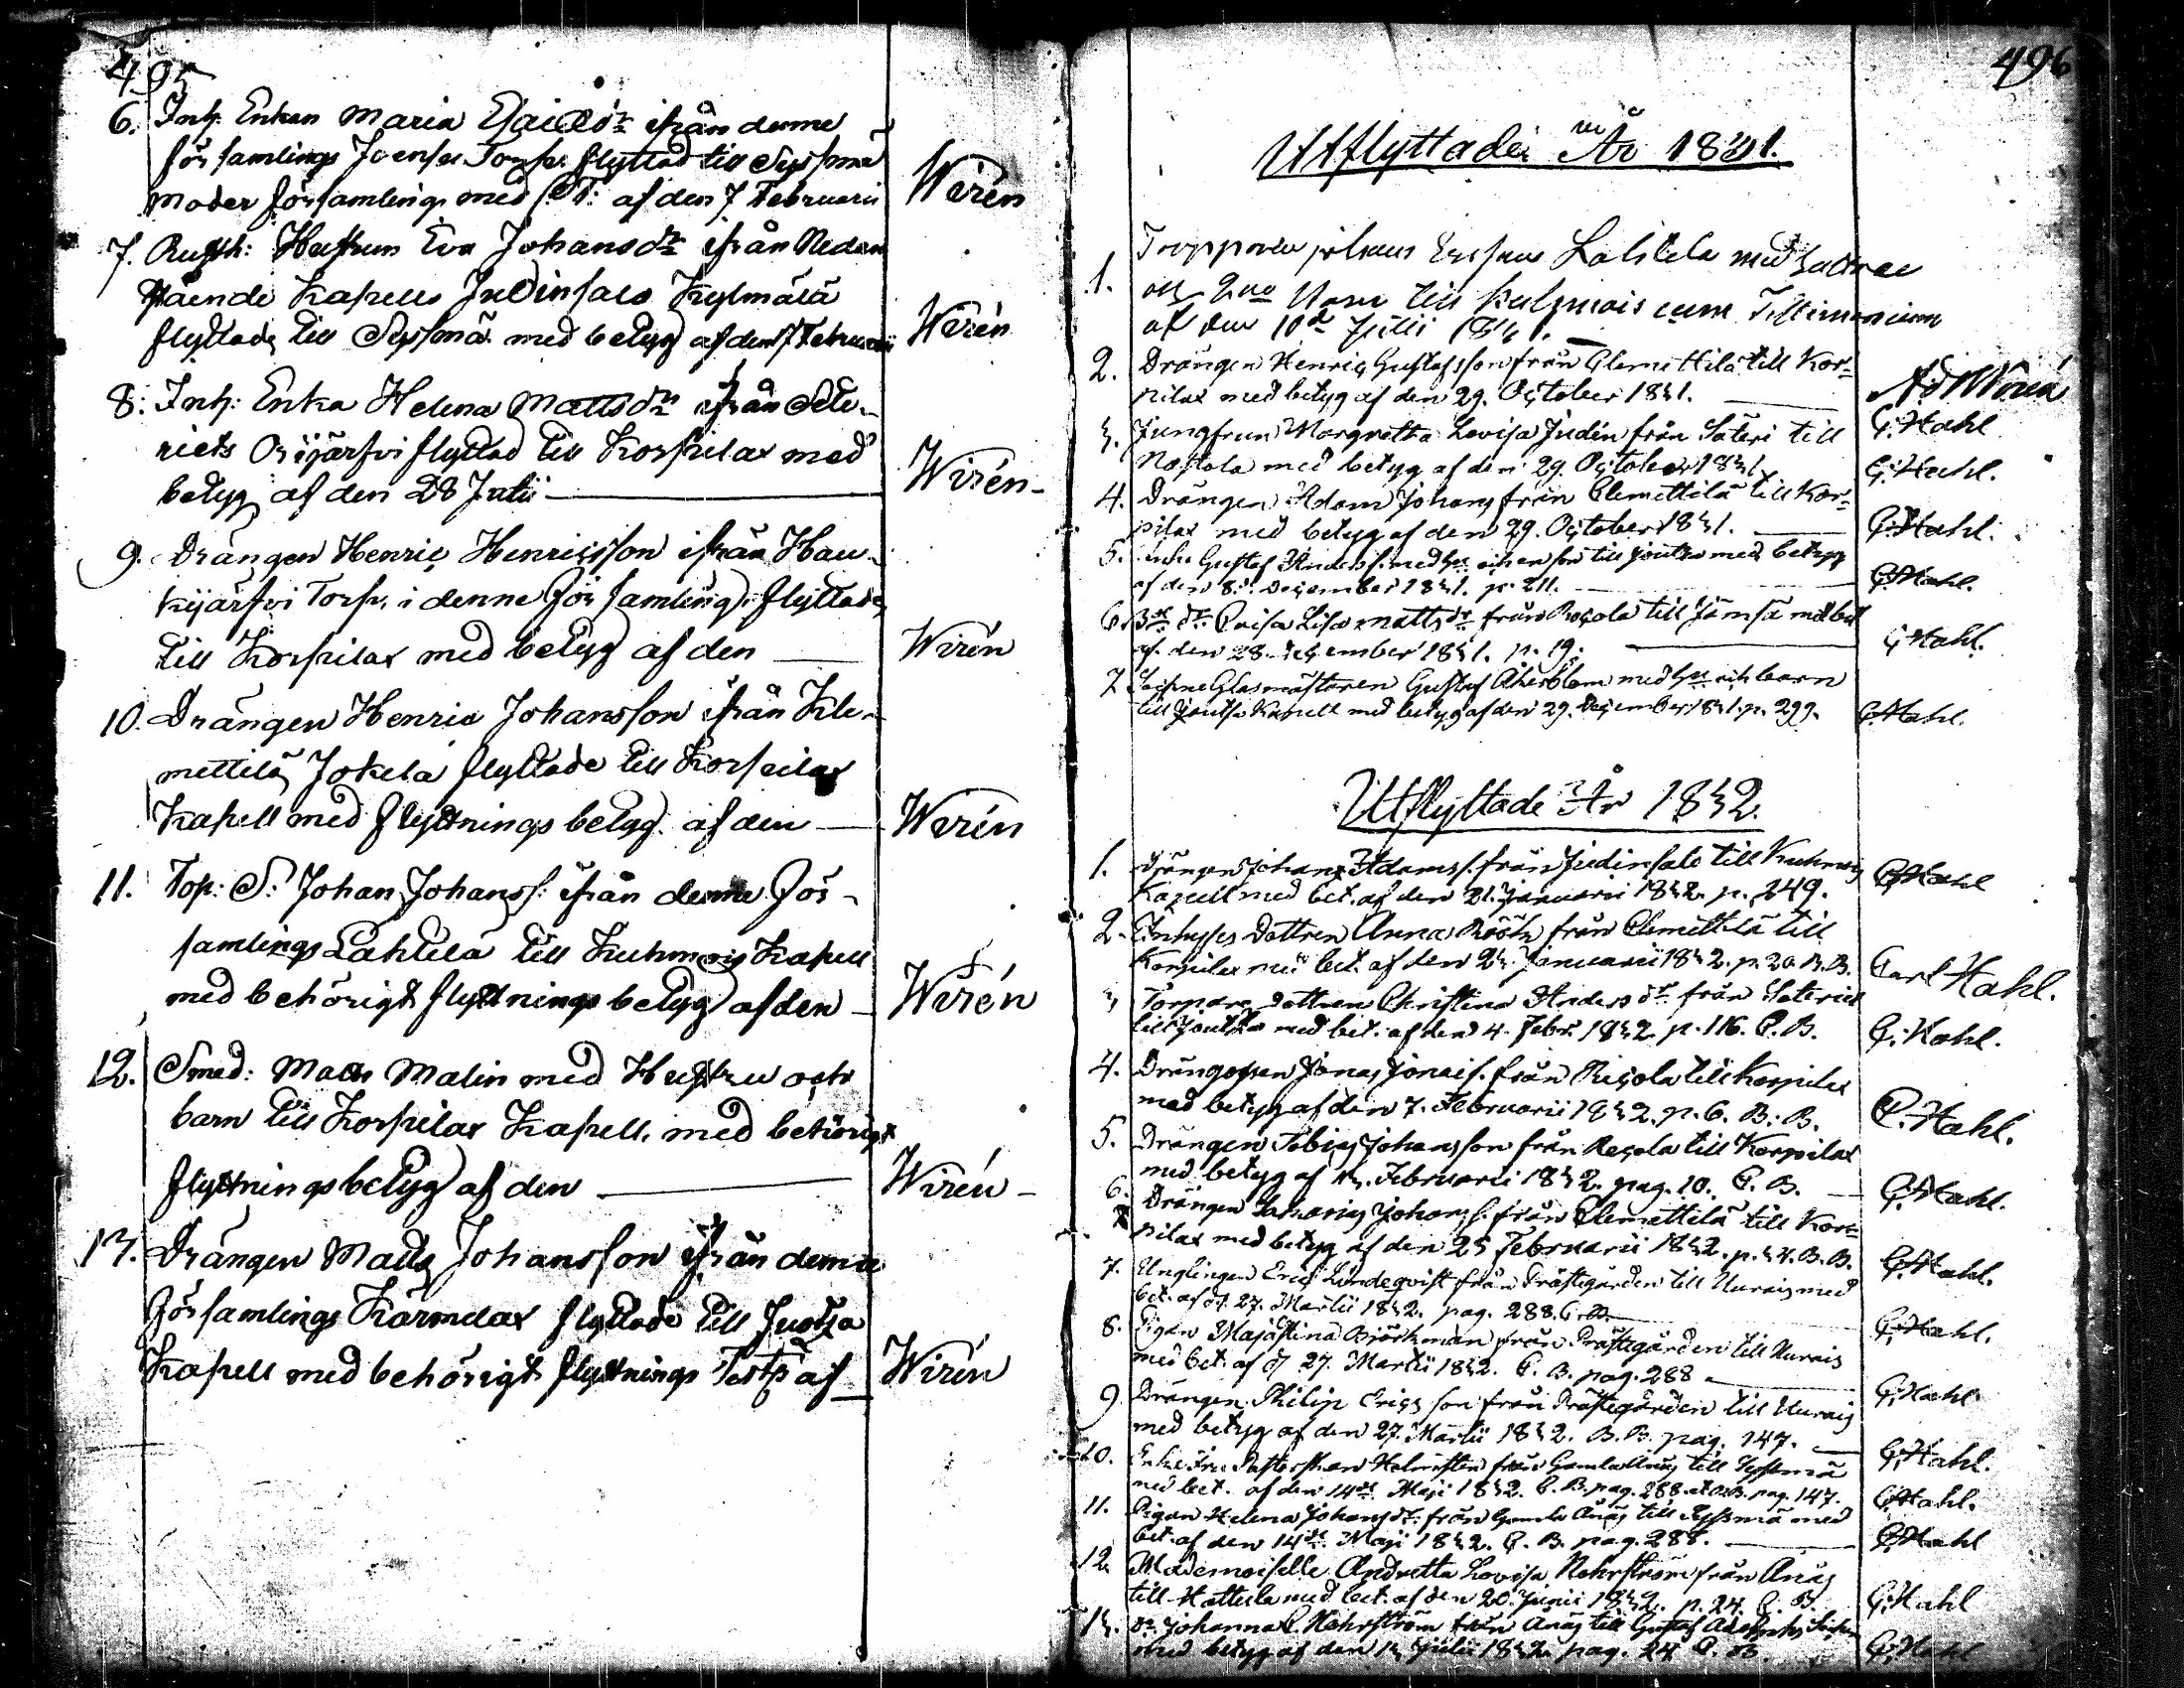 495
6. Inh. Enkan Maria Esaiædr ifrån denne
församlings Joensu Torp. flyttad till Sysmä
Moder församling med T: af den 7 Februarii
Wirén
7. Hustrun Eva Johansdr ifrån Nedan
stående Kapells Judinsalo Kylmälä
flyttade till Sysmä med betyg af den 7 Februarii
Wirén
8. Inh: Enka Helena Mattsdr ifrån Säte-
riets flyttad till Korpilax med
betyg af den 28 Julii
Wirén
9. Drängen Henric Henricsson ifrån Hau-
kijärfvi Torp. i denne församling, flyttade
till Korpilax med betyg af den
Wirén
10. Drängen Henric Johansson ifrån Kle-
mettilä Jokela flyttade till Korpilax
Kapell med flyttnings betyg af den
Wirén
11. Top: S: Johan Johanss: ifrån denne För-
samlings Lahtila till Kuhmois Kapell
med behörigt flyttnings betyg af den
Wirén
12. Smed: Matts Malin med Hustru och
barn till Korpilax Kapell med behörigt
flyttningsbetyg af den
Wirén
13. Drängen Matts Johansson ifrån denna
Församlings Kärmelax flyttade till Juotza
Kapell med behörigt flyttnings af
Wirén
496
Utflyttade År 1831.
1. Lahtela med
till Kuhmois cum Testimonium
af den 10de Julii 1831.
2. Drängen Henric Gustafsson från Clemettilä till Kor-
pilax med betyg af den 29. October 1831.
C. Hahl
3. Jungfrun Margretha Lovisa Judén från Säteri till
Nastola med betyg af den 29. October 1831.
C. Hahl.
4. Drängen Adam Johanss. från Clemettilä till Kor-
pilax med betyg af den 29. October 1831.
C. Hahl.
5. Gustaf Anderss. med hu och en son till Joutza med betyg
af den 8. December 1831. p. 211.
C. Hahl.
6. Caisa Lisa Mattsdr från till Jämsä med bet
af den 28 December 1831. p. 19.
C. Hahl.
7. Glasmästaren Gustaf Åkerblom med hu och barn
till Joutza Kapell med betyg af den 29. December 1831. p. 299.
C. Hahl.
Utflyttade År 1832.
1. Drängen Johan Adamss. från Judinsalo till Kuhmois
Kapell med bet. af den 21. Januarii 1832. p. 249.
C. Hahl
2. Inhyses Dottren Anna från Clemettilä till
Korpilax med bet. af den Januarii 1832. p. 20. B.B.
Carl Hahl.
3. Torpare Dottren Christina Andersdr från Säteriet
till Joutza med bet. af den 4. Febr. 1832. p. 116. C. B.
C. Hahl.
4. Jonas Jonæss. från till Korpilax
med betyg af den 7. Februarii 1832. p. 6. B. B.
C. Hahl.
5. Drängen Tobias Johansson från till Korpilax
med betyg af Februarii 1832. pag. 10. C. B.
C. Hahl.
6. Drängen Johanss. från Clemettilä till Kor-
pilax med betyg af den 25 Februarii 1832. B.B.
C. Hahl.
7. Ynglingen Eric Lindeqvist från Prästegården till Uurais med
bet. af d. 27. Martii 1832. pag. 288. C.B.
C. Hahl.
8. Pigan Maja Stina Björkman från Prästegården till Uurais
med bet. af d 27. Martii 1832. C. B. pag. 288
C. Hahl
9. Drängen Philip Ericsson från Prästegården till Uurais
med betyg af den 27. Martii 1832. B.B. pag. 147.
C. Hahl.
10. Enke Fru från Gamla till Sysmä
med bet. af den 14de Maji 1832. C. B. pag. 288. et B.B. pag. 147.
C. Hahl.
11. Pigan Helena Johansdr. från Gamla Anäs till Sysmä med
bet. af den 14de Maji 1832. C. B. pag. 288.
C. Hahl
12. Mademoiselle Andretta Lovisa Nohrström från Anäs
till Hattula med bet. af den 20. Junii 1832. p. 24. C. B.
C. Hahl
13. Johanna C. Nohrström från Anäs till Gustaf Adolphs
med betyg af den Julii 1832. pag. 24 C. B.
C. Hahl